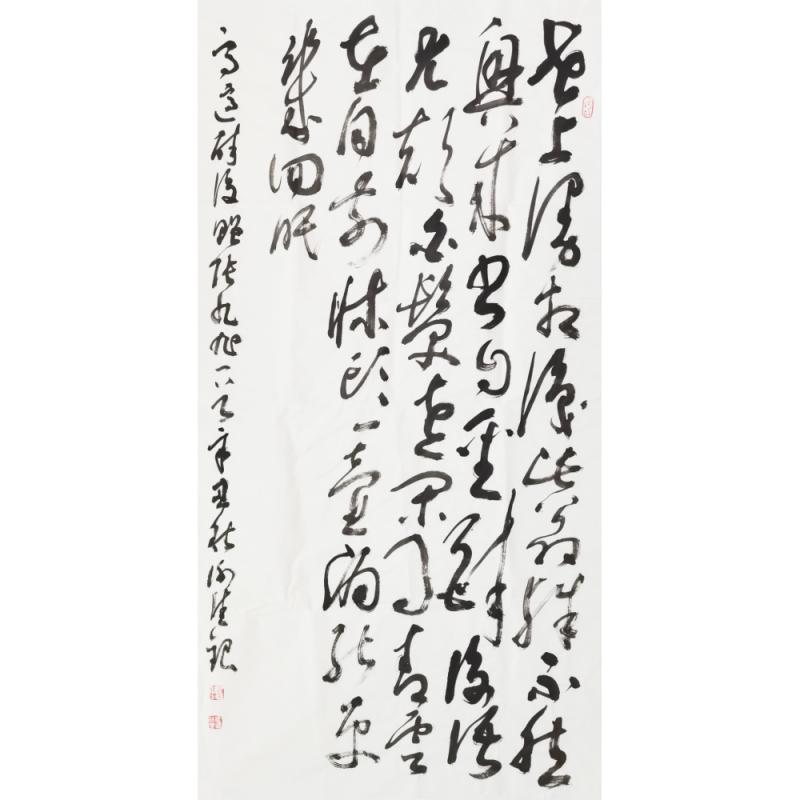 世上漫相識此翁殊不然
興来書自聖醉後語
尤顛白髮老閑事青雲
在目前床頭一壺酒能更
幾回眠
高適醉後贈張九旭一首辛丑秋